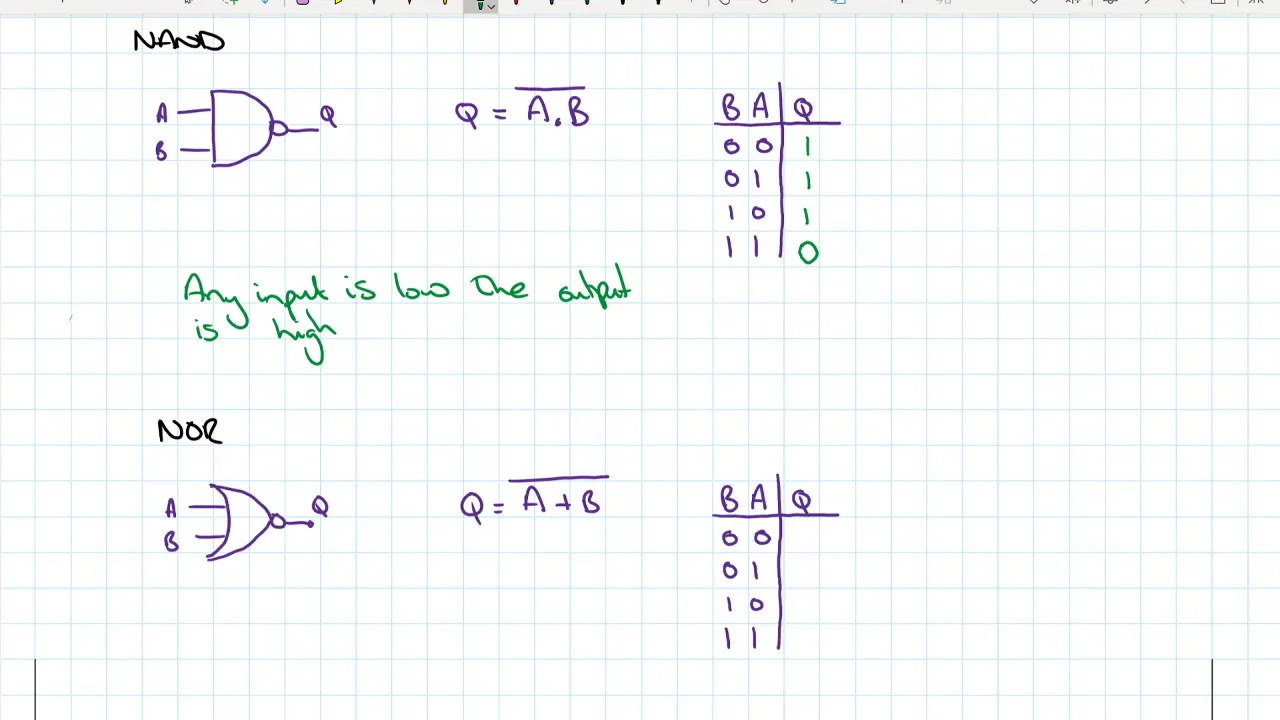 NAND
A
B
Q
Q = \overline{A.B}
B A Q
0 0 1
0 1 1
1 0 1
1 1 0
Any input is low the output
is high
NOR
A
B
Q
Q = \overline{A + B}
B A Q
0 0
0 1
1 0
1 1